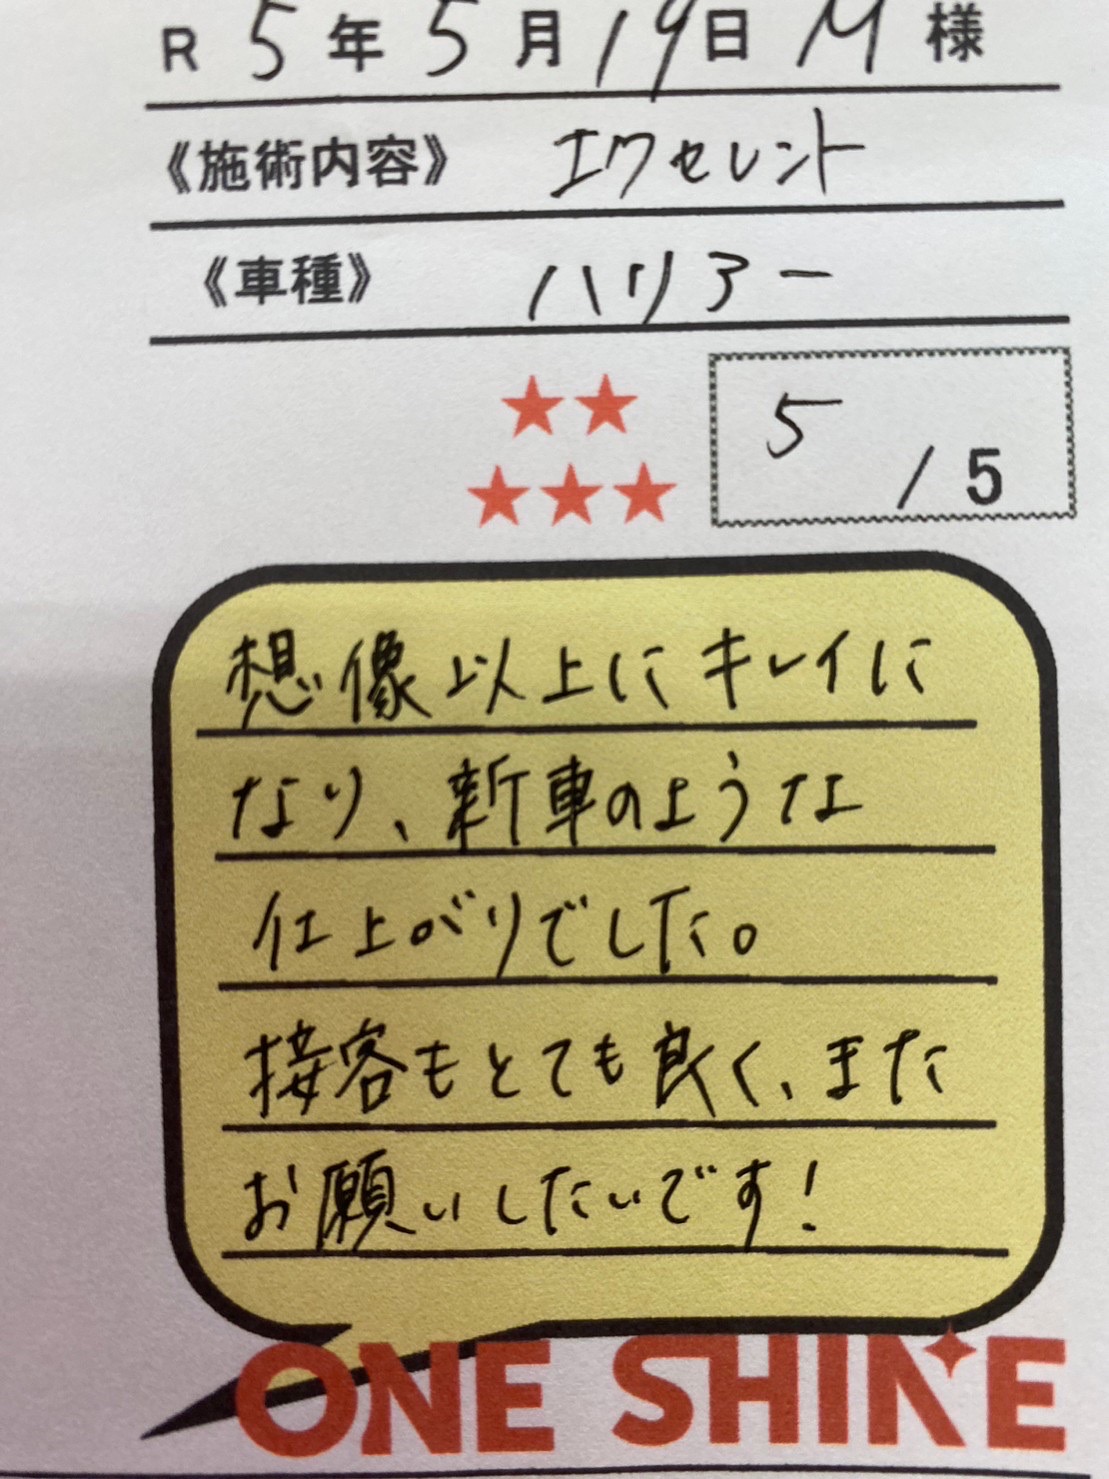 R 5年5月19日 M 様
《施術内容》 エクセレント
《車種》 ハリアー
★★
5 / 5
★★★
想像以上にキレイに
なり、新車のような
仕上がりでした。
接客もとても良く、また
お願いしたいです!
ONE SHINE